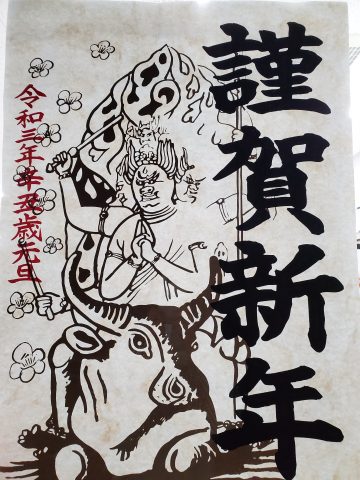 謹賀新年
令和三年辛丑歳元旦